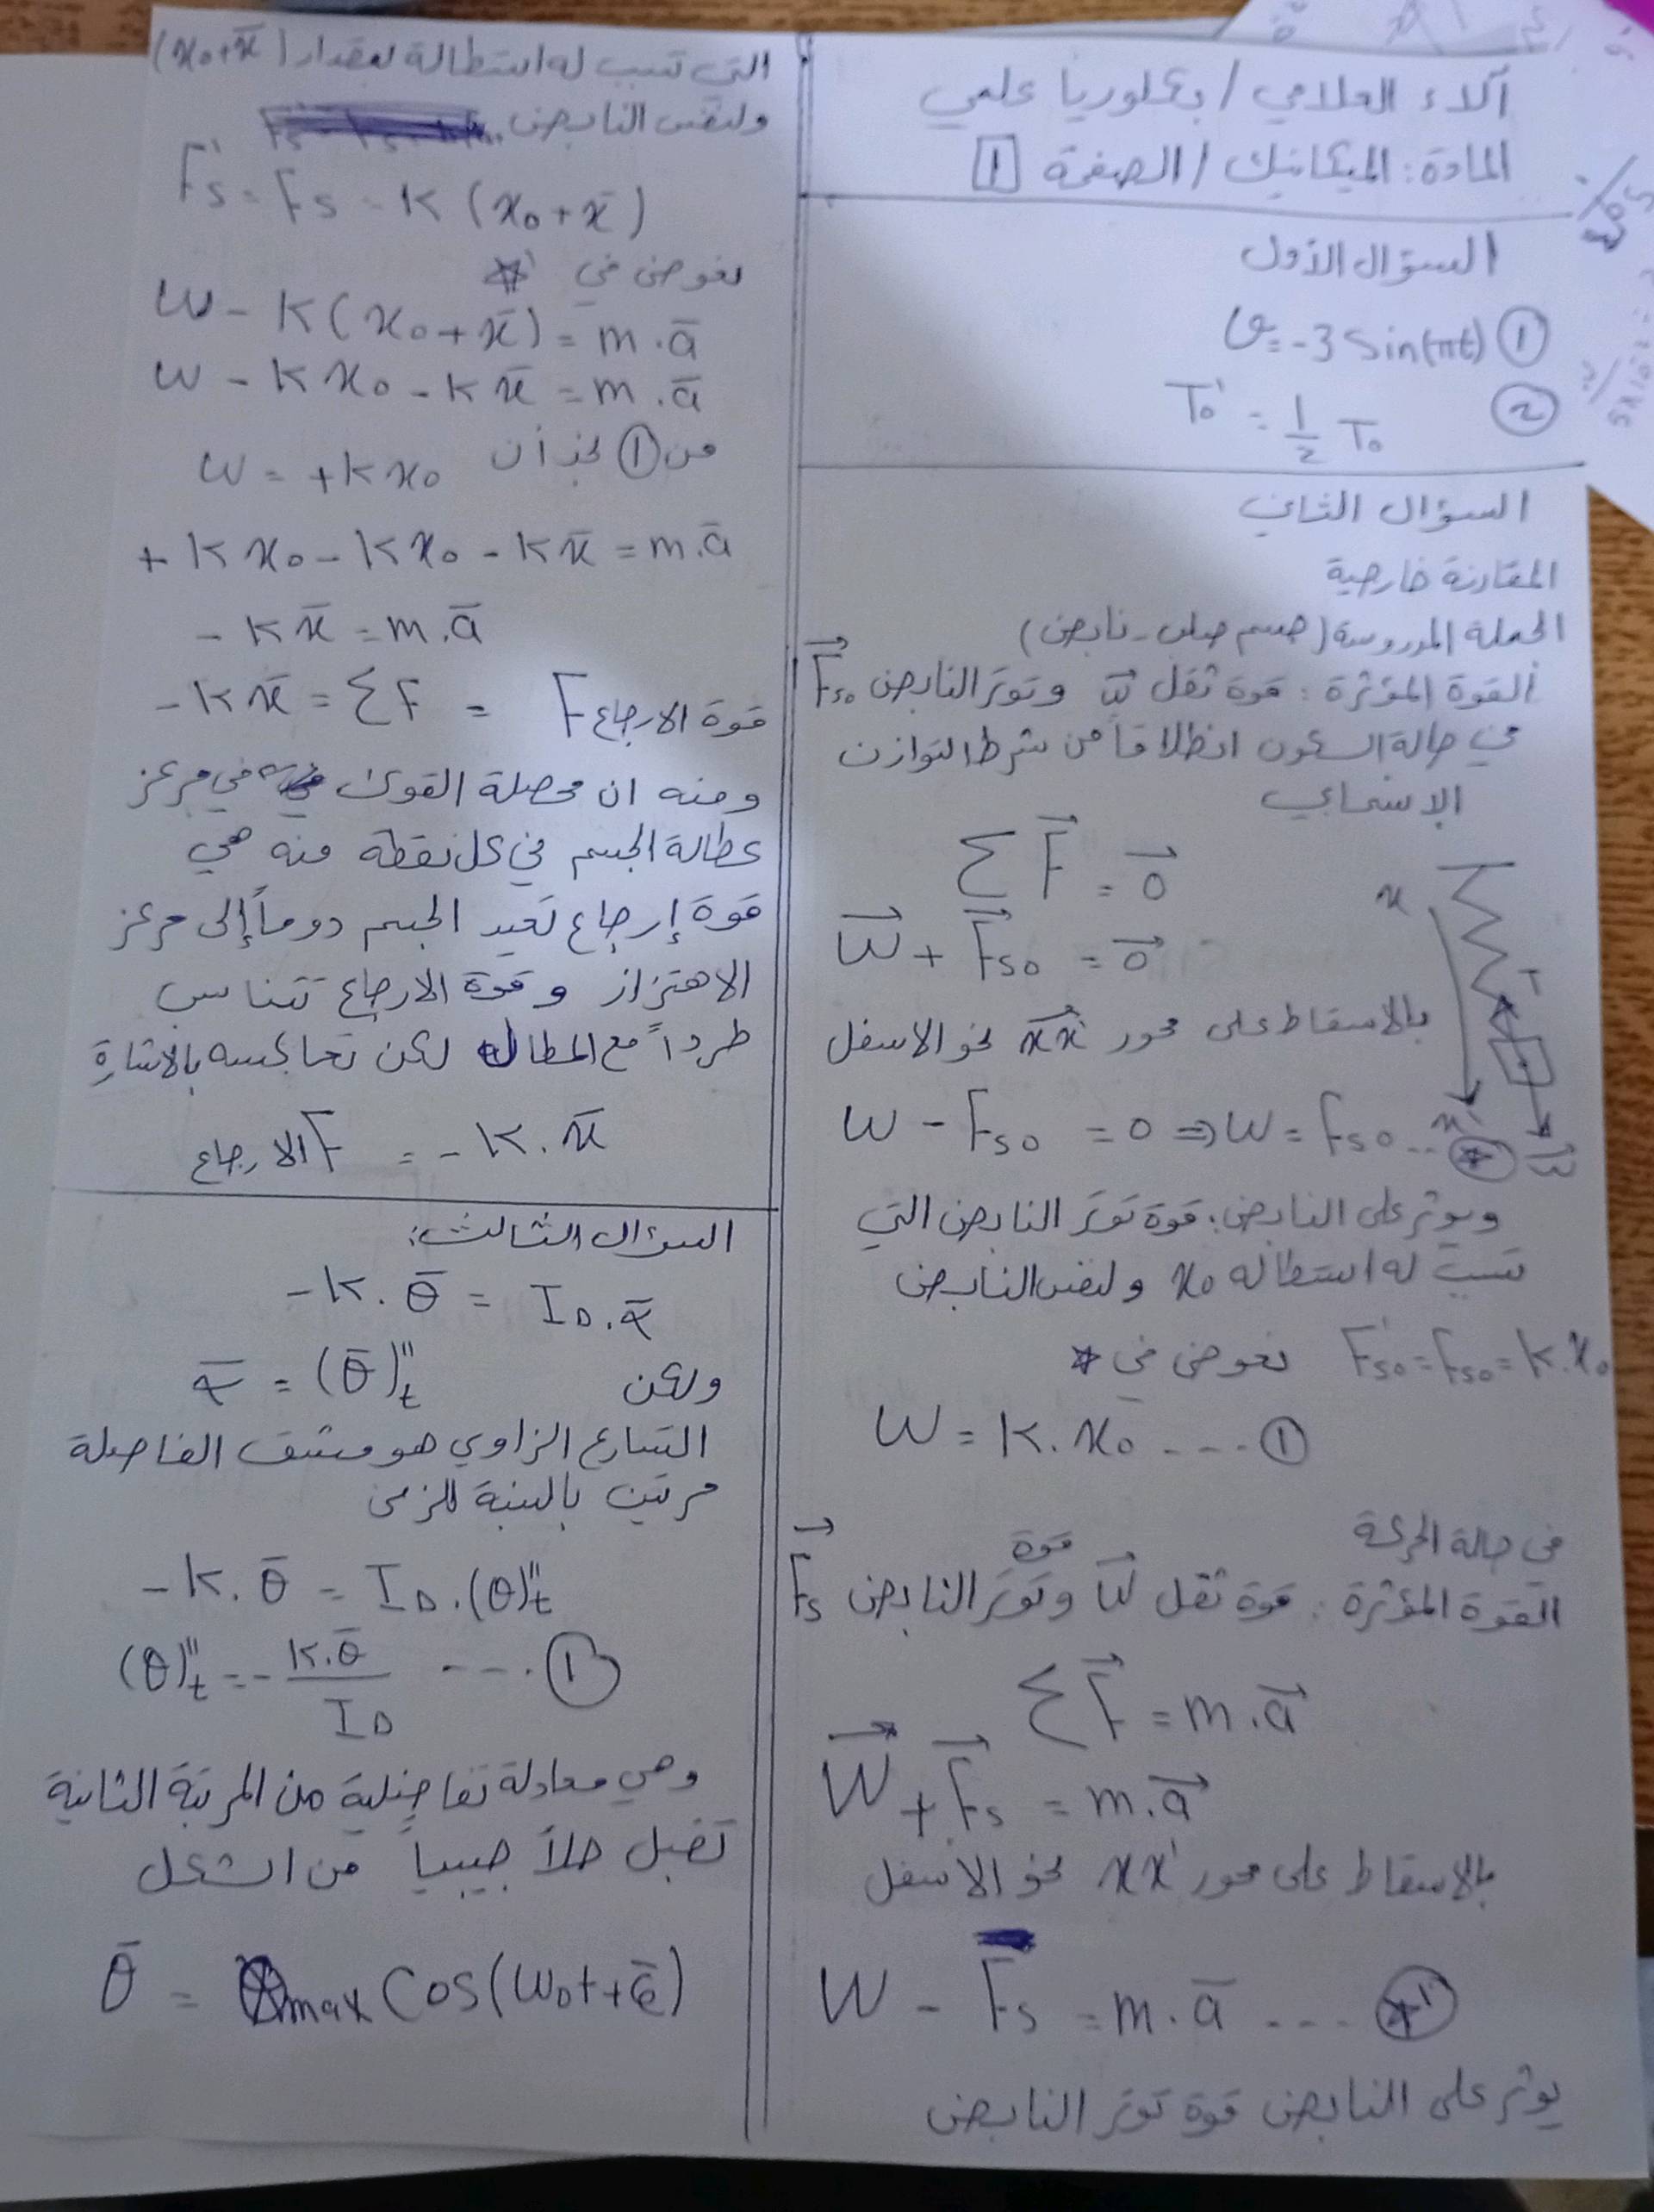 آلاء العلامي / بكلوريا علمي
المادة: الميكانيك / الصفحة 1
السؤال الأول
① v = -3 sin(πt)
② T₀' = 1/2 T₀
السؤال الثاني
المقارنة خارجية
الجملة المدروسة (جسم صلب - نابض)
القوة المؤثرة: قوة ثقل W⃗ وتوتر النابض F⃗s₀
في حالة السكون انطلاقاً من شرط التوازن
الانسحابي
ΣF⃗ = 0⃗
W⃗ + F⃗s₀ = 0⃗
بالاسقاط على محور xx' نحو الاسفل
W - Fs₀ = 0 ⇒ W = Fs₀ .. *
x
T
x'
W⃗
ويوثر على النابض: قوة توتر النابض التي
تسبب له استطاله x₀ ولنفس النابض
F's₀ = Fs₀ = K.x₀ نعوض في *
W = K.x₀ ---- ①
في حالة الحركة
القوة المؤثرة: قوة ثقل W⃗ وقوة توتر النابض F⃗s
ΣF⃗ = m.a⃗
W⃗ + F⃗s = m.a⃗
بالاسقاط على محور xx' نحو الاسفل
W - Fs = m.a̅ ---- *'
يوثر على النابض قوة توتر النابض
التي تسبب له استطالة بمقدار (x₀+x̅)
ولنفس النابض
F's = Fs = K(x₀+x̅)
نعوض في *'
W - K(x₀+x̅) = m.a̅
W - Kx₀ - Kx̅ = m.a̅
من ① نجد أن W = +Kx₀
+Kx₀ - Kx₀ - Kx̅ = m.a̅
-Kx̅ = m.a̅
-Kx̅ = ΣF = F قوة الارجاع
ومنه ان محصلة القوى في مركز
عطالة الجسم في كل نقطة منه هي
قوة إرجاع تعيد الجسم دوماً إلى مركز
الاهتزاز وقوة الارجاع تتناسب
طرداً مع المطال لكن تعاكسه بالاشارة
F الارجاع = -K.x̅
السؤال الثالث:
-K.θ̅ = I∆.α̅
ولكن α̅ = (θ̅)''t
التسارع الزاوي هو مشتق الفاصلة
مرتين بالنسبة للزمن
-K.θ̅ = I∆.(θ)''t
(θ)''t = - K.θ̅ / I∆ ---- ①
وهي معادلة تفاضلية من المرتبة الثانية
تقبل حلاً جيبياً من الشكل
θ̅ = θmax Cos(ω₀t+φ̅)